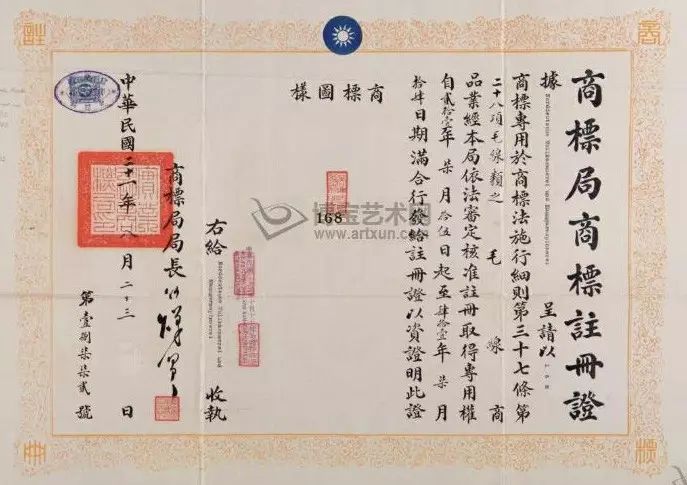 商標局商標註冊證
據
呈請以
168
商標專用於商標法施行細則第三十七條第
二十八項毛線類之 毛 線 商
品業經本局依法審定核准註冊取得專用權
自貳拾壹年柒月拾伍日起至肆拾壹年柒月
拾肆日期滿合行發給註冊證以資證明此證
商標圖樣
168
右給
收執
商標局局長
中華民國二十一年八月二十三日
第壹捌柒柒貳號
博宝艺术网
www.artxun.com